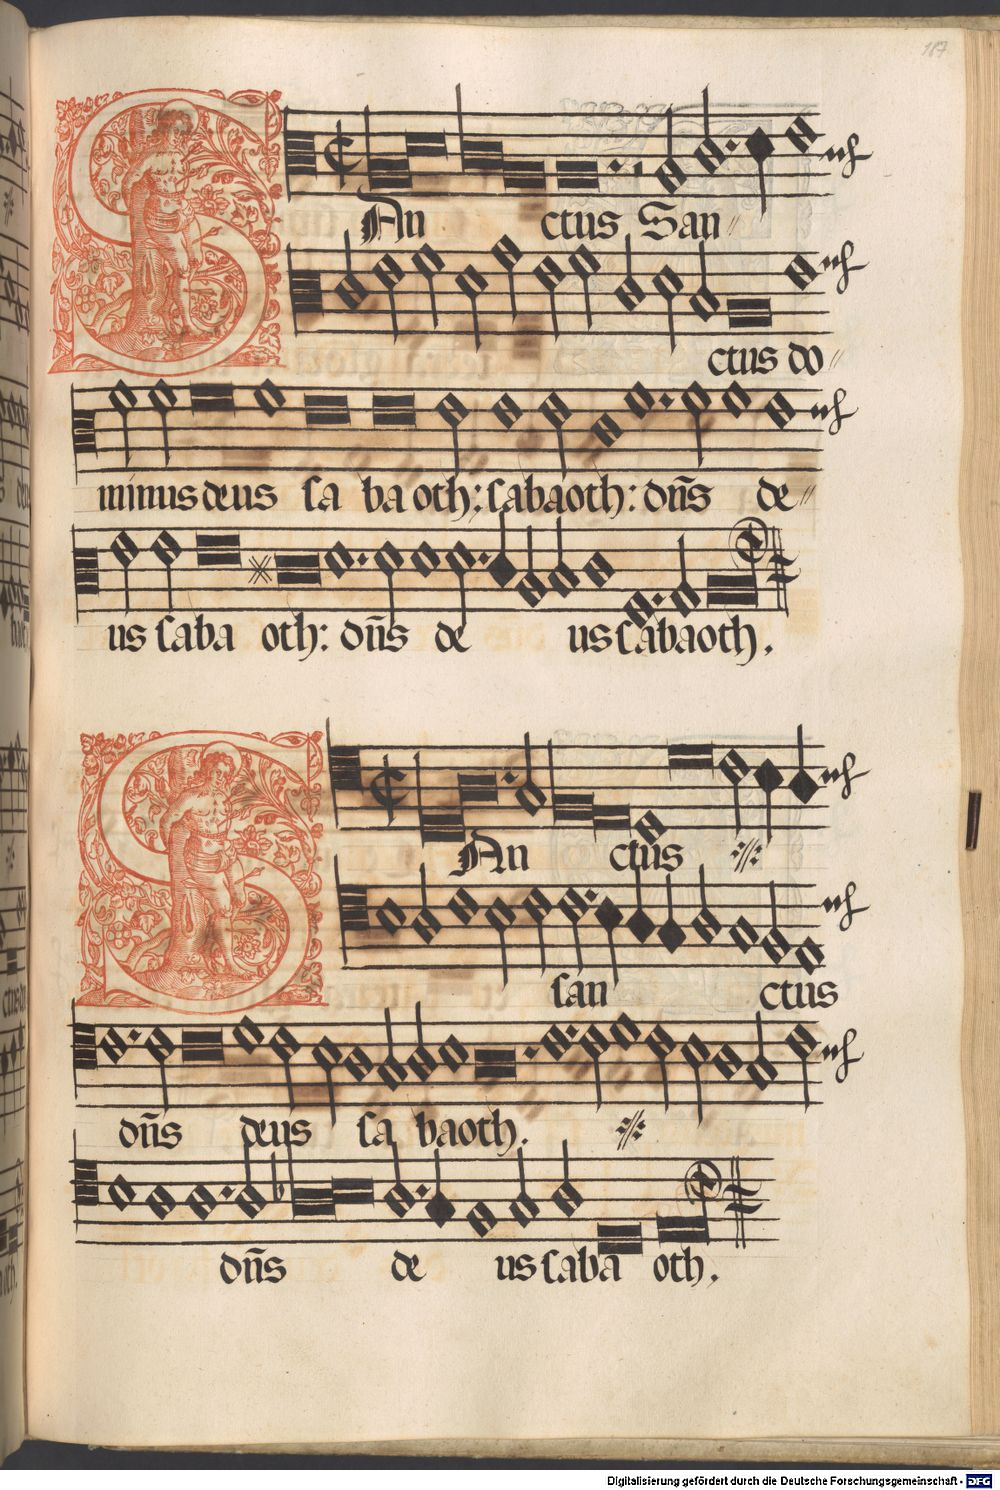 187
SAn ctus San〃
ctus do〃
minus deus sa ba oth: sabaoth: dn̄s de〃
us saba oth: dn̄s de us sabaoth.
SAn ctus ※
san ctus
dn̄s deus sa baoth. ※
dn̄s de us saba oth.
Digitalisierung gefördert durch die Deutsche Forschungsgemeinschaft - DFG